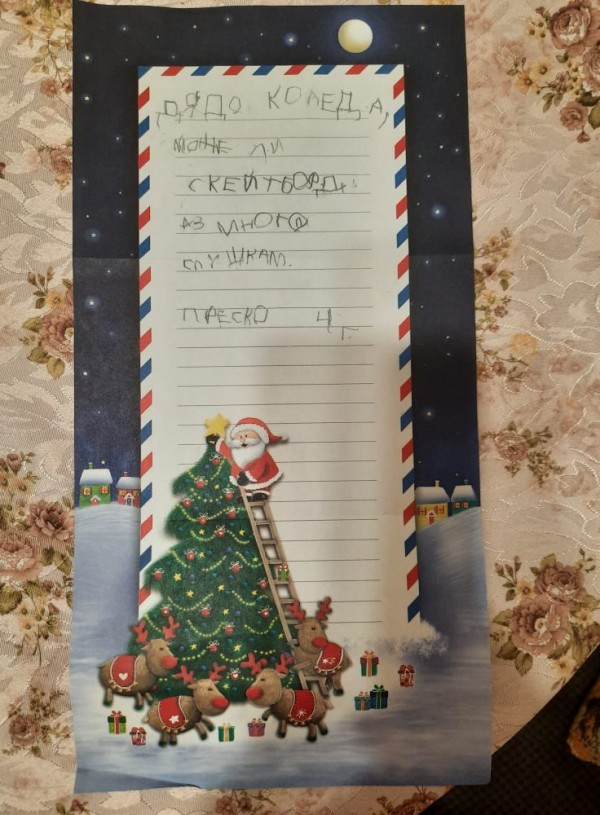 ДЯДО КОЛЕДА,
МОЖЕ ЛИ
СКЕЙТБОРД.
АЗ МНОГО
СЛУШКАМ.
ПРЕСКО 4 г.